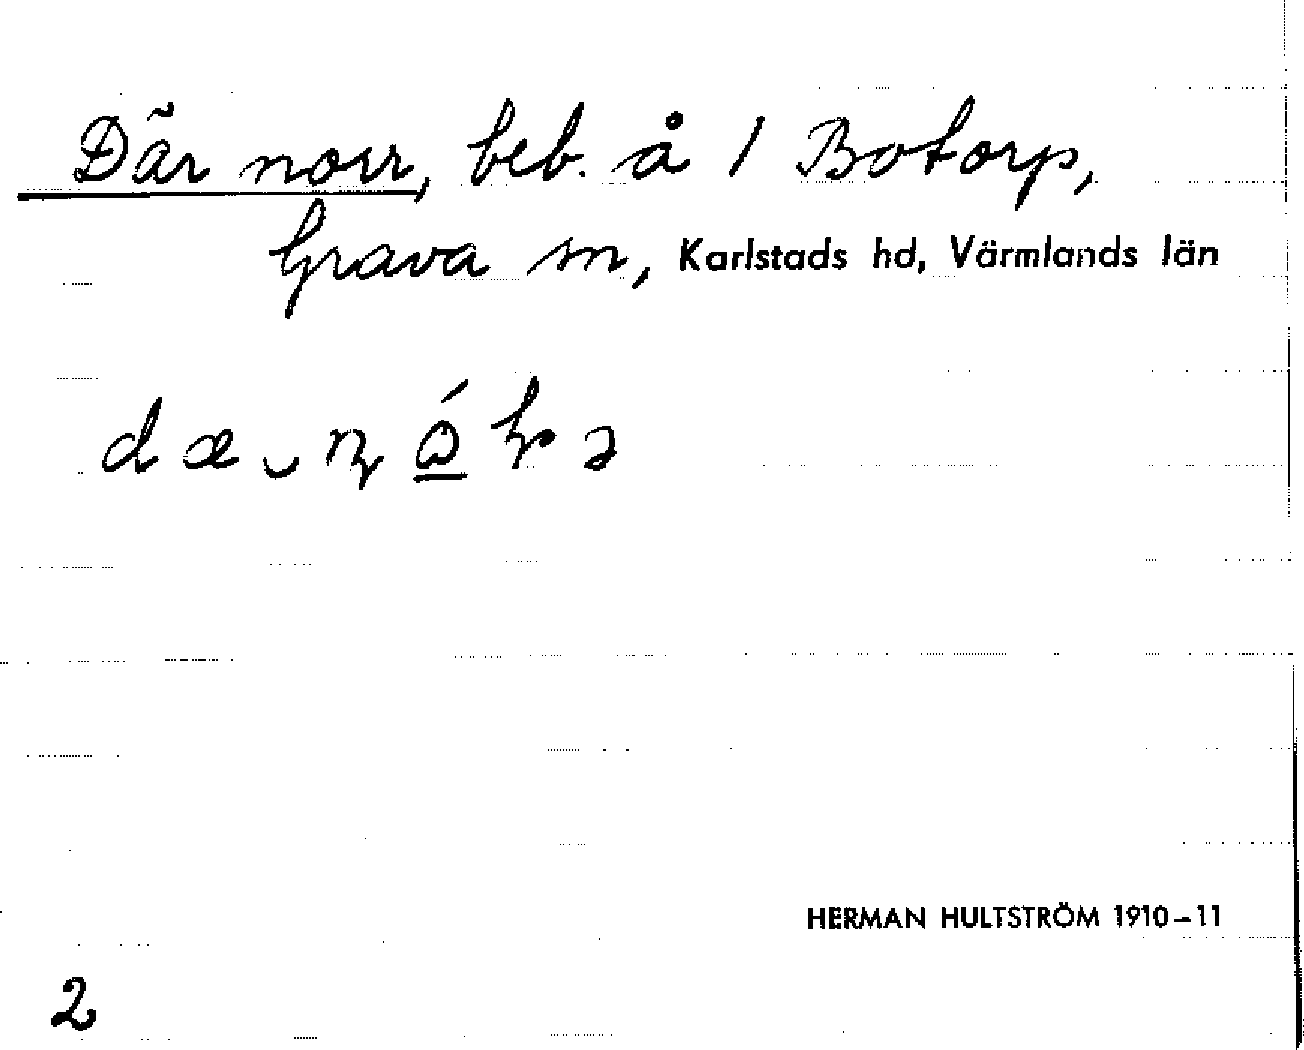 Där norr, beb. å 1 Botorp,
Grava sn, Karlstads hd, Värmlands län
HERMAN HULTSTRÖM 1910-11
2